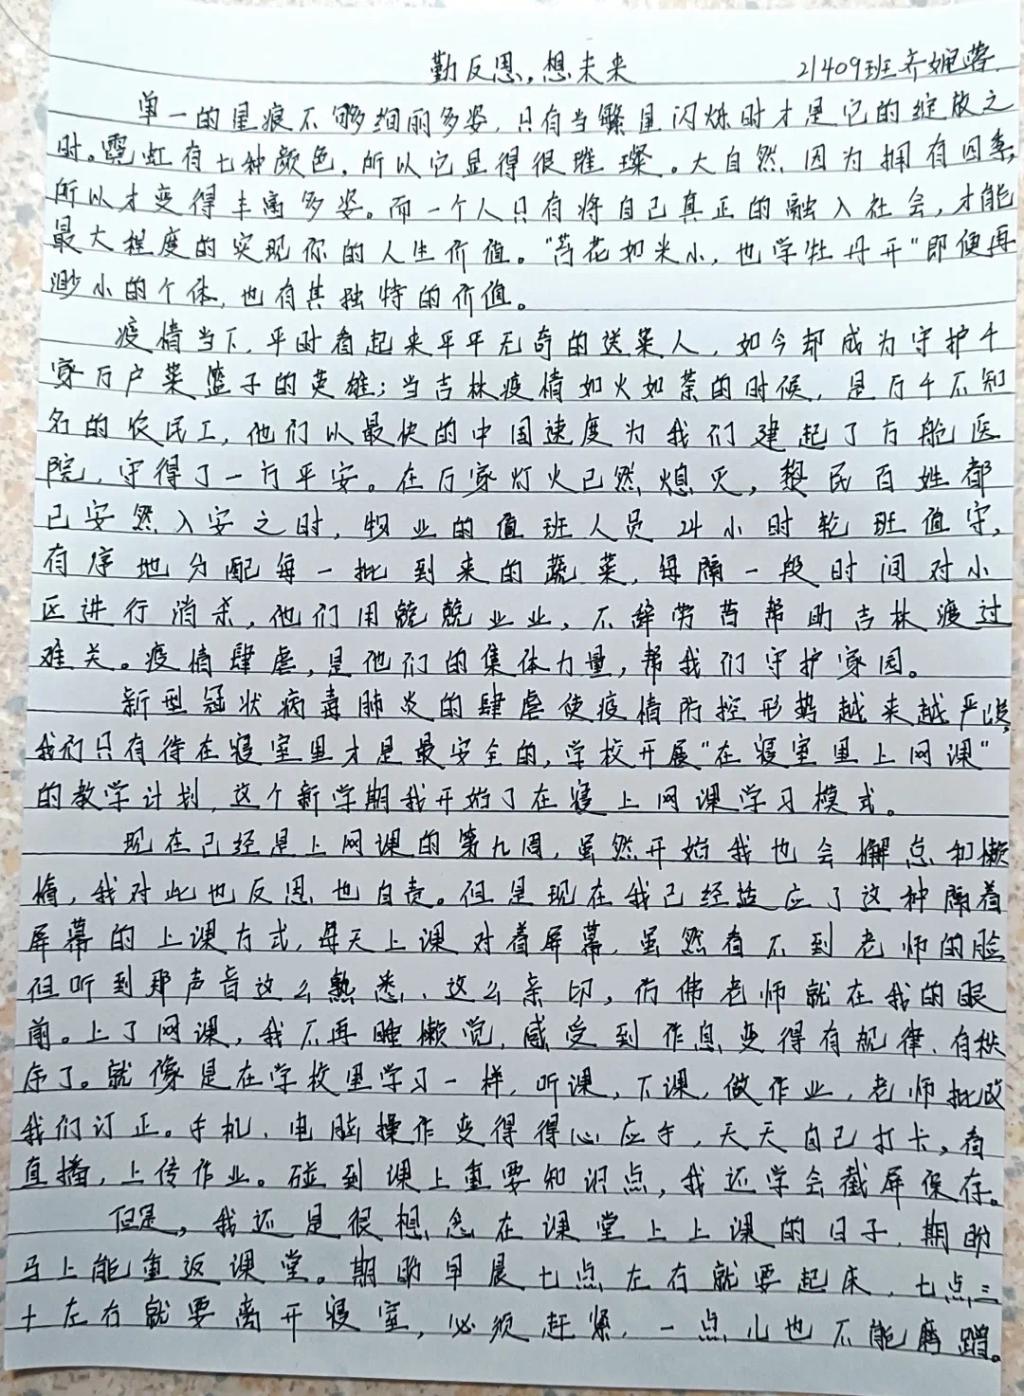 勤反思,想未来 21409班齐婉蓉
单一的星痕不够绚丽多姿,只有当繁星闪烁时才是它的绽放之
时。霓虹有七种颜色,所以它显得很璀璨。大自然因为拥有四季,
所以才变得丰富多姿。而一个人只有将自己真正的融入社会,才能
最大程度的实现你的人生价值。“苔花如米小,也学牡丹开”即便再
渺小的个体,也有其独特的价值。
疫情当下,平时看起来平平无奇的送菜人,如今却成为守护千
家万户菜篮子的英雄;当吉林疫情如火如荼的时候,是万千不知
名的农民工,他们以最快的中国速度为我们建起了方舱医
院,守得了一方平安。在万家灯火已然熄灭,黎民百姓都
已安然入安之时,物业的值班人员24小时轮班值守,
有序地分配每一批到来的蔬菜,每隔一段时间对小
区进行消杀,他们用兢兢业业,不辞劳苦帮助吉林渡过
难关。疫情肆虐,是他们的集体力量,帮我们守护家园。
新型冠状病毒肺炎的肆虐使疫情防控形势越来越严峻,
我们只有待在寝室里才是最安全的,学校开展“在寝室里上网课”
的教学计划,这个新学期我开始了在寝上网课学习模式。
现在已经是上网课的第九周,虽然开始我也会懈怠和懒
惰,我对此也反思也自责。但是现在我已经适应了这种隔着
屏幕的上课方式,每天上课对着屏幕,虽然看不到老师的脸
但听到那声音这么熟悉、这么亲切,仿佛老师就在我的眼
前。上了网课,我不再睡懒觉,感受到作息变得有规律、有秩
序了。就像是在学校里学习一样,听课,下课,做作业,老师批改
我们订正。手机、电脑操作变得得心应手,天天自己打卡,看
直播,上传作业。碰到课上重要知识点,我还学会截屏保存。
但是,我还是很想念在课堂上上课的日子,期盼
马上能重返课堂。期盼早晨七点左右就要起床,七点三
十左右就要离开寝室,必须赶紧,一点儿也不能磨蹭。